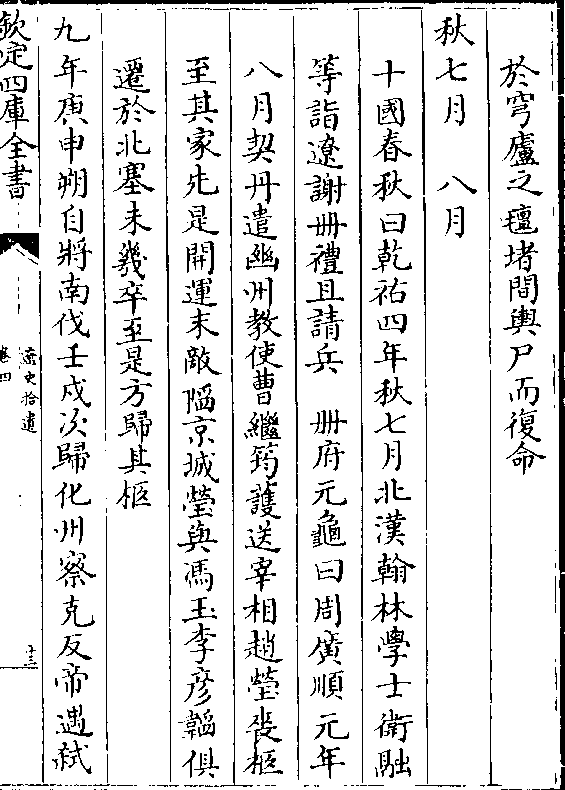 於穹廬之氊堵間輿尸而復命
秋七月　八月
十國春秋曰乾祐四年秋七月北漢翰林學士衛融
等詣遼謝冊禮且請兵　冊府元龜曰周廣順元年
八月契丹遣幽州教使曹繼筠護送宰相趙瑩喪柩
至其家先是開運末敵陷京城瑩與馮玉李彥韜俱
遷於北塞未幾卒至是方歸其柩
九年庚申朔自將南伐壬戌次歸化州察克反帝遇弑
欽定四庫全書
遼史拾遺
卷四
十三